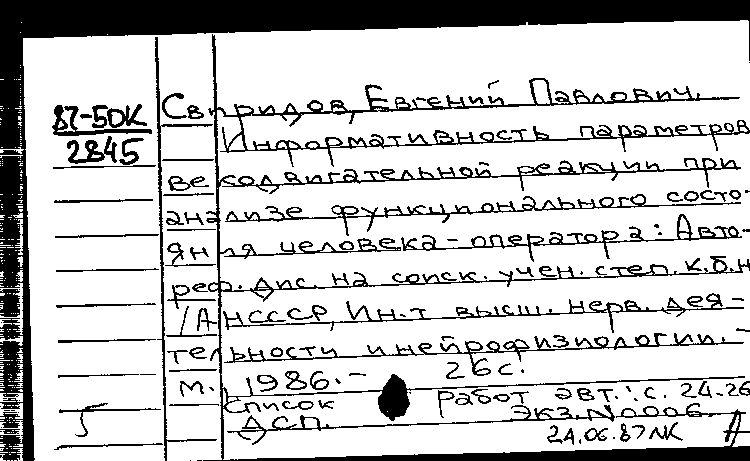 87-50К
2845
Свиридов, Евгений Павлович.
Информативность параметров
векодвигательной реакции при
анализе функционального состо-
яния человека-оператора: Авто-
реф. дис. на соиск. учен. степ. к.б.н
/АНСССР, Ин-т высш. нерв. дея-
тельности и нейрофизиологии. -
М., 1986. - 26с.
Список работ авт.: с. 24-26
ДСП. Экз. N0006.
24.06.87 NK А
5